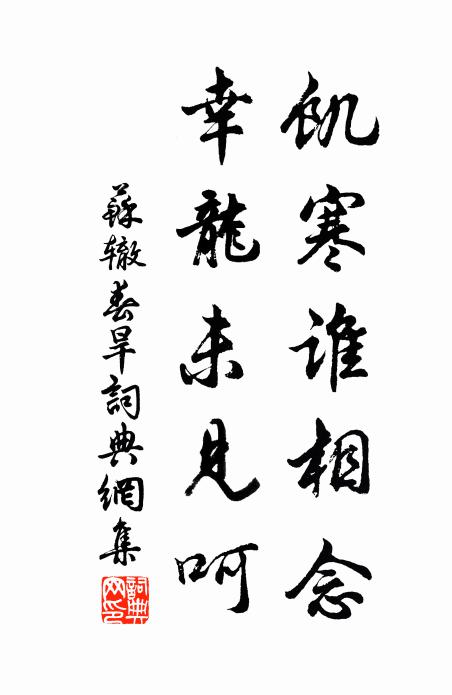 飢寒誰相念
幸龍未見呵
蘇轍春旱詞典網集
詞典网印